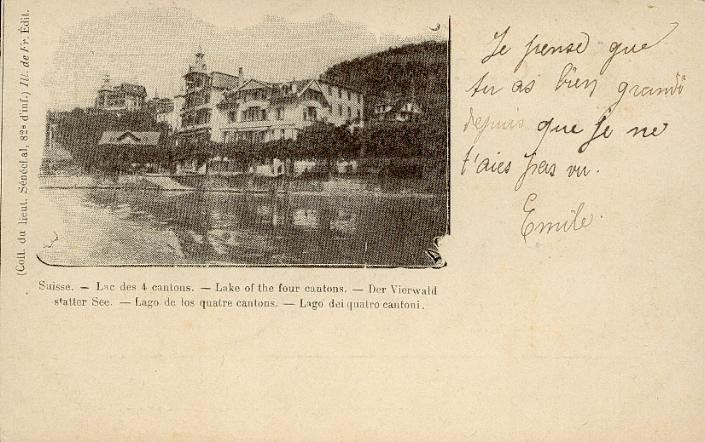 (Coll. du lieut. Sénéchal, 82e d'inf.) Ill. de Fr. Édit.
Suisse. — Lac des 4 cantons. — Lake of the four cantons. — Der Vierwald
statter See. — Lago de los quatre cantons. — Lago dei quatro cantoni.
Je pense que
tu as bien grandi
depuis que je ne
t'aies pas vu.
Emile.